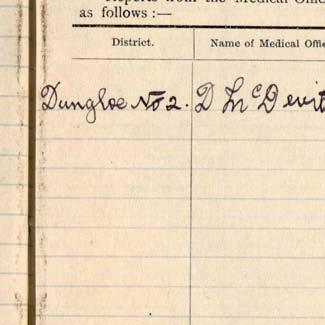 Reports from the Medical Offic
as follows :—
District.
Name of Medical Offi
Dungloe No 2. D McDevit